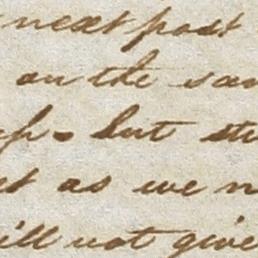 next post
on the san
up. but stu
as we n
ill not give